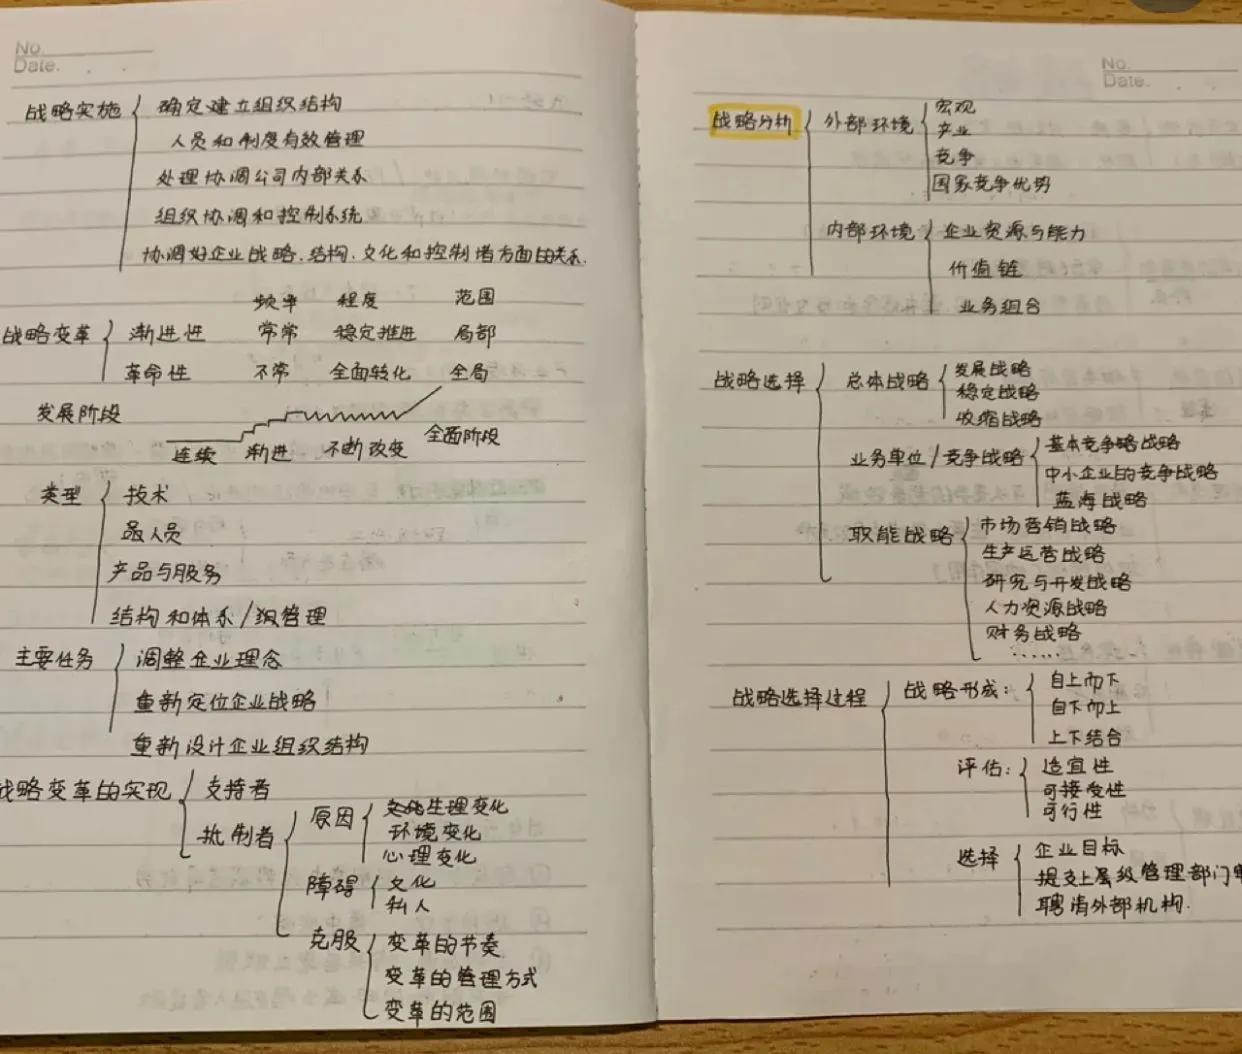 No.
Date.
战略实施 确定建立组织结构
人员和制度有效管理
处理协调公司内部关系
组织协调和控制系统
协调好企业战略、结构、文化和控制诸方面的关系.
频率 程度 范围
战略变革 渐进性 常常 稳定推进 局部
革命性 不常 全面转化 全局
发展阶段
连续 渐进 不断改变 全面阶段
类型 技术
人员
产品与服务
结构和体系/级管理
主要任务 调整企业理念
重新定位企业战略
重新设计企业组织结构
战略变革的实现 支持者
抵制者 原因 生理变化
环境变化
心理变化
障碍 文化
私人
克服 变革的节奏
变革的管理方式
变革的范围
No.
Date.
战略分析 外部环境 宏观
产业
竞争
国家竞争优势
内部环境 企业资源与能力
价值链
业务组合
战略选择 总体战略 发展战略
稳定战略
收缩战略
业务单位/竞争战略 基本竞争略战略
中小企业的竞争战略
蓝海战略
职能战略 市场营销战略
生产运营战略
研究与开发战略
人力资源战略
财务战略
......
战略选择过程 战略形成: 自上而下
自下而上
上下结合
评估: 适宜性
可接受性
可行性
选择 企业目标
提交上层级管理部门审
聘请外部机构.